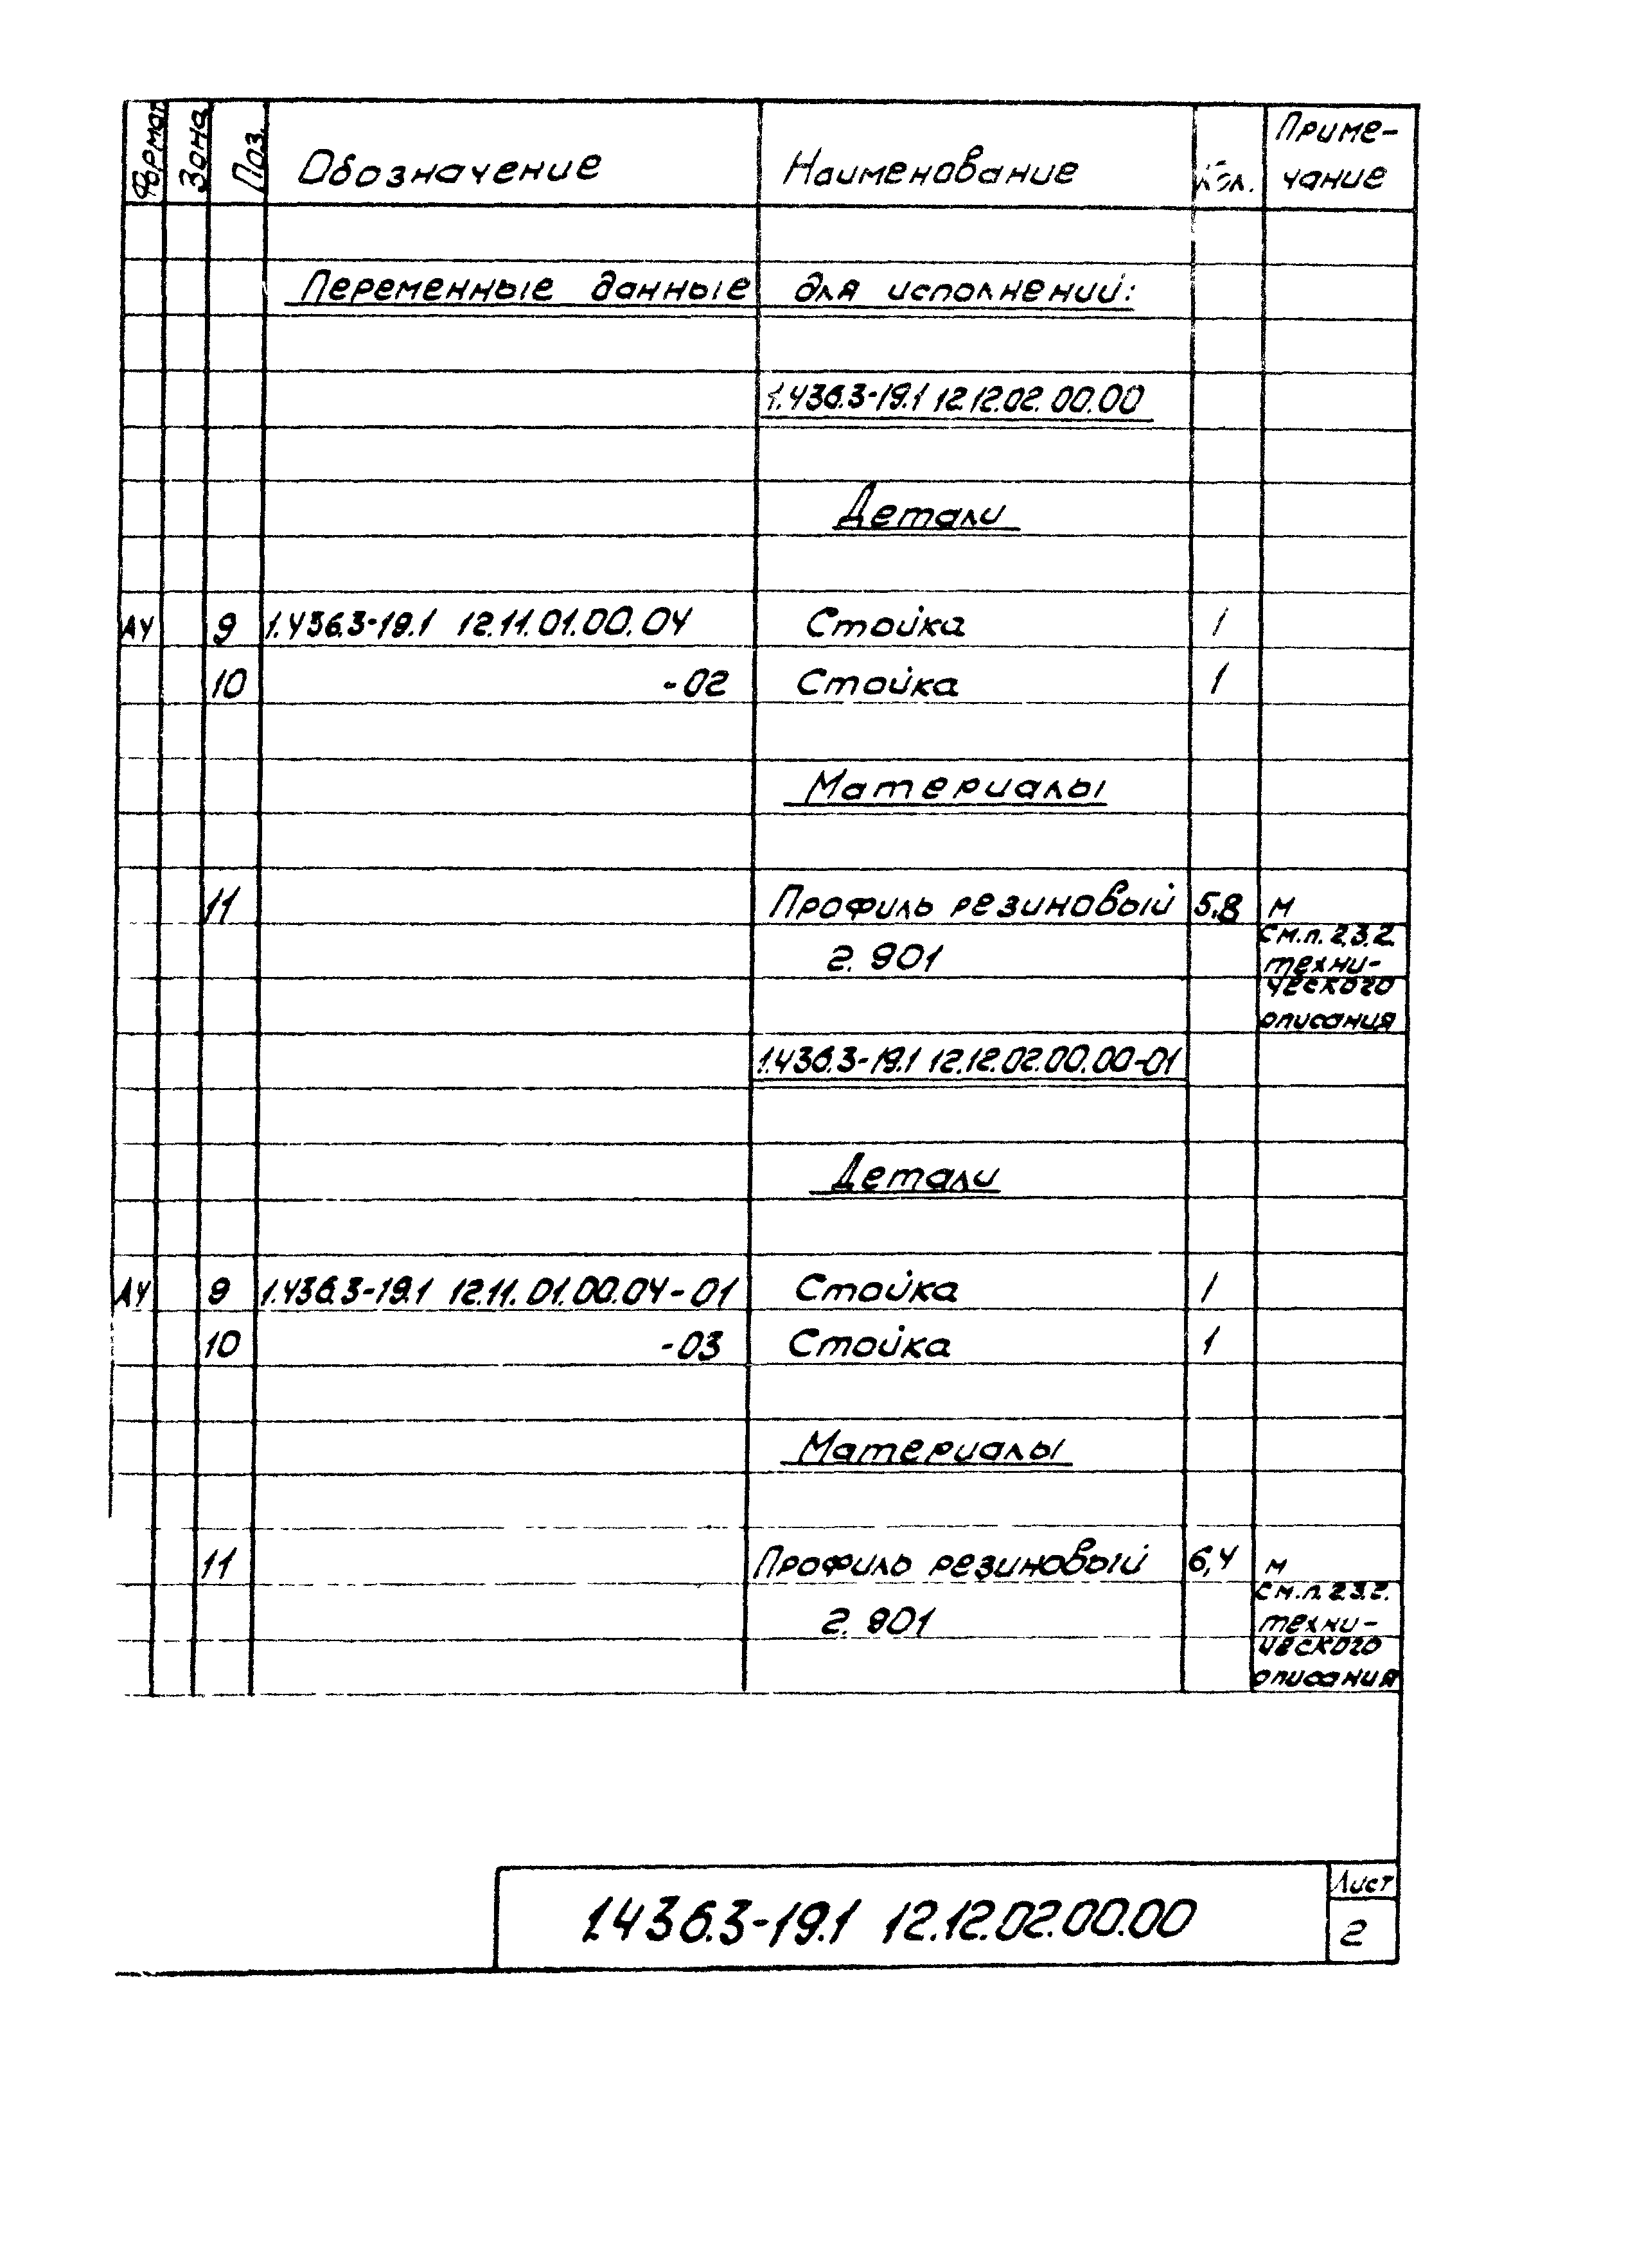 Формат Зона Поз. Обозначение Наименование Кол. Приме-
чание
Переменные данные для исполнений:
1.436.3-19.1 12.12.02.00.00
Детали
А4 9 1.436.3-19.1 12.11.01.00.04 Стойка 1
10 -02 Стойка 1
Материалы
11 Профиль резиновый 5,8 м
г. 901 См.п. 2.3.2.
техни-
ческого
описания
1.436.3-19.1 12.12.02.00.00-01
Детали
А4 9 1.436.3-19.1 12.11.01.00.04-01 Стойка 1
10 -03 Стойка 1
Материалы
11 Профиль резиновый 6,4 м
г. 901 См.п. 2.3.2.
техни-
ческого
описания
1.436.3-19.1 12.12.02.00.00 Лист
2